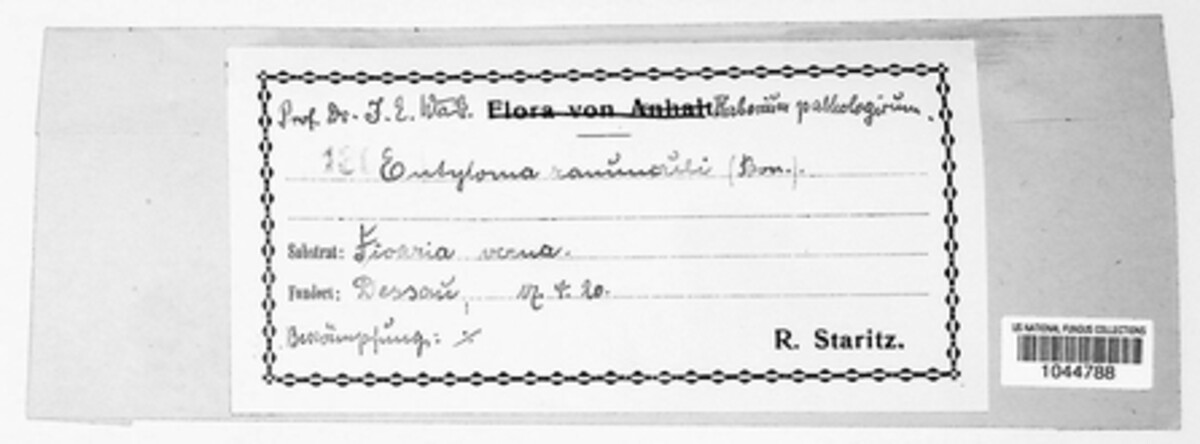 Prof. Dr. J. E. Flora von Anhalt Herbarium pathologicum.
Entyloma ranunculi (Bon.).
Substrat: Ficaria verna.
Fundort: Dessau, 20.
Bekämpfung:
R. Staritz.
US NATIONAL FUNGUS COLLECTIONS
1044788